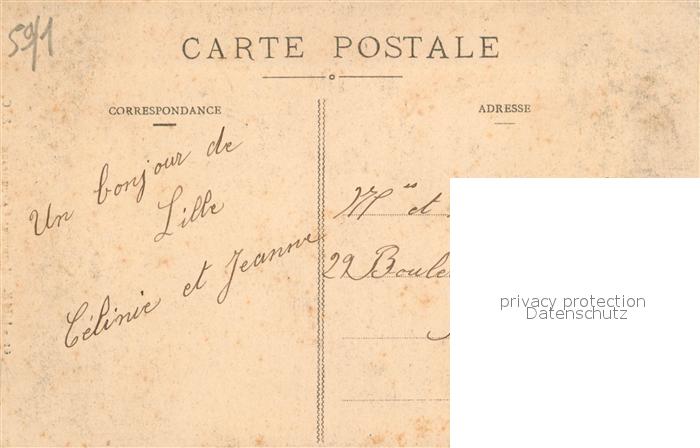 59/1
CARTE POSTALE
CORRESPONDANCE
ADRESSE
Un bonjour de
Lille
Célinie et Jeanne
M es et
22 Boule
privacy protection
Datenschutz